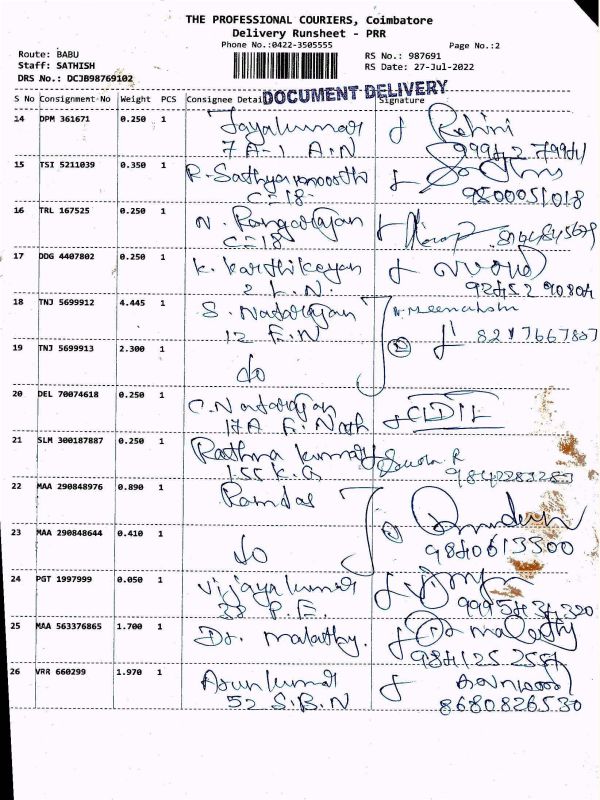 THE PROFESSIONAL COURIERS, Coimbatore
Delivery Runsheet - PRR
Phone No.:0422-3505555 Page No.:2
Route: BABU RS No.: 987691
Staff: SATHISH RS Date: 27-Jul-2022
DRS No.: DCJB98769102
DOCUMENT DELIVERY
S No Consignment-No Weight PCS Consignee Detail Signature
14 DPM 361671 0.250 1 Jayakumar Rohini
7 A-1 A.N
15 TSI 5211039 0.350 1 R. Sathyamoorthi
C-18 9800051018
16 TRL 167525 0.250 1 N. Rangarajan
C-18
17 DDG 4407802 0.250 1 K. Karthikeyan
2 L.N.
18 TNJ 5699912 4.445 1 S. Natarajan N. Meenakshi
12 E.N 8217667807
19 TNJ 5699913 2.300 1 do 2
20 DEL 70074618 0.250 1 C. Natarajan
17A E. Nagh
21 SLM 300187887 0.250 1 Rathna Kumar
155 K.G
22 MAA 290848976 0.890 1 Ramdas
23 MAA 290848644 0.410 1 do 9840613300
24 PGT 1997999 0.050 1 Vijayakumar
38 P.E.
25 MAA 563376865 1.700 1 Dr. Malathy. Dr Malathy
26 VRR 660299 1.970 1 Arunkumar
52 S.B.N 8680826530